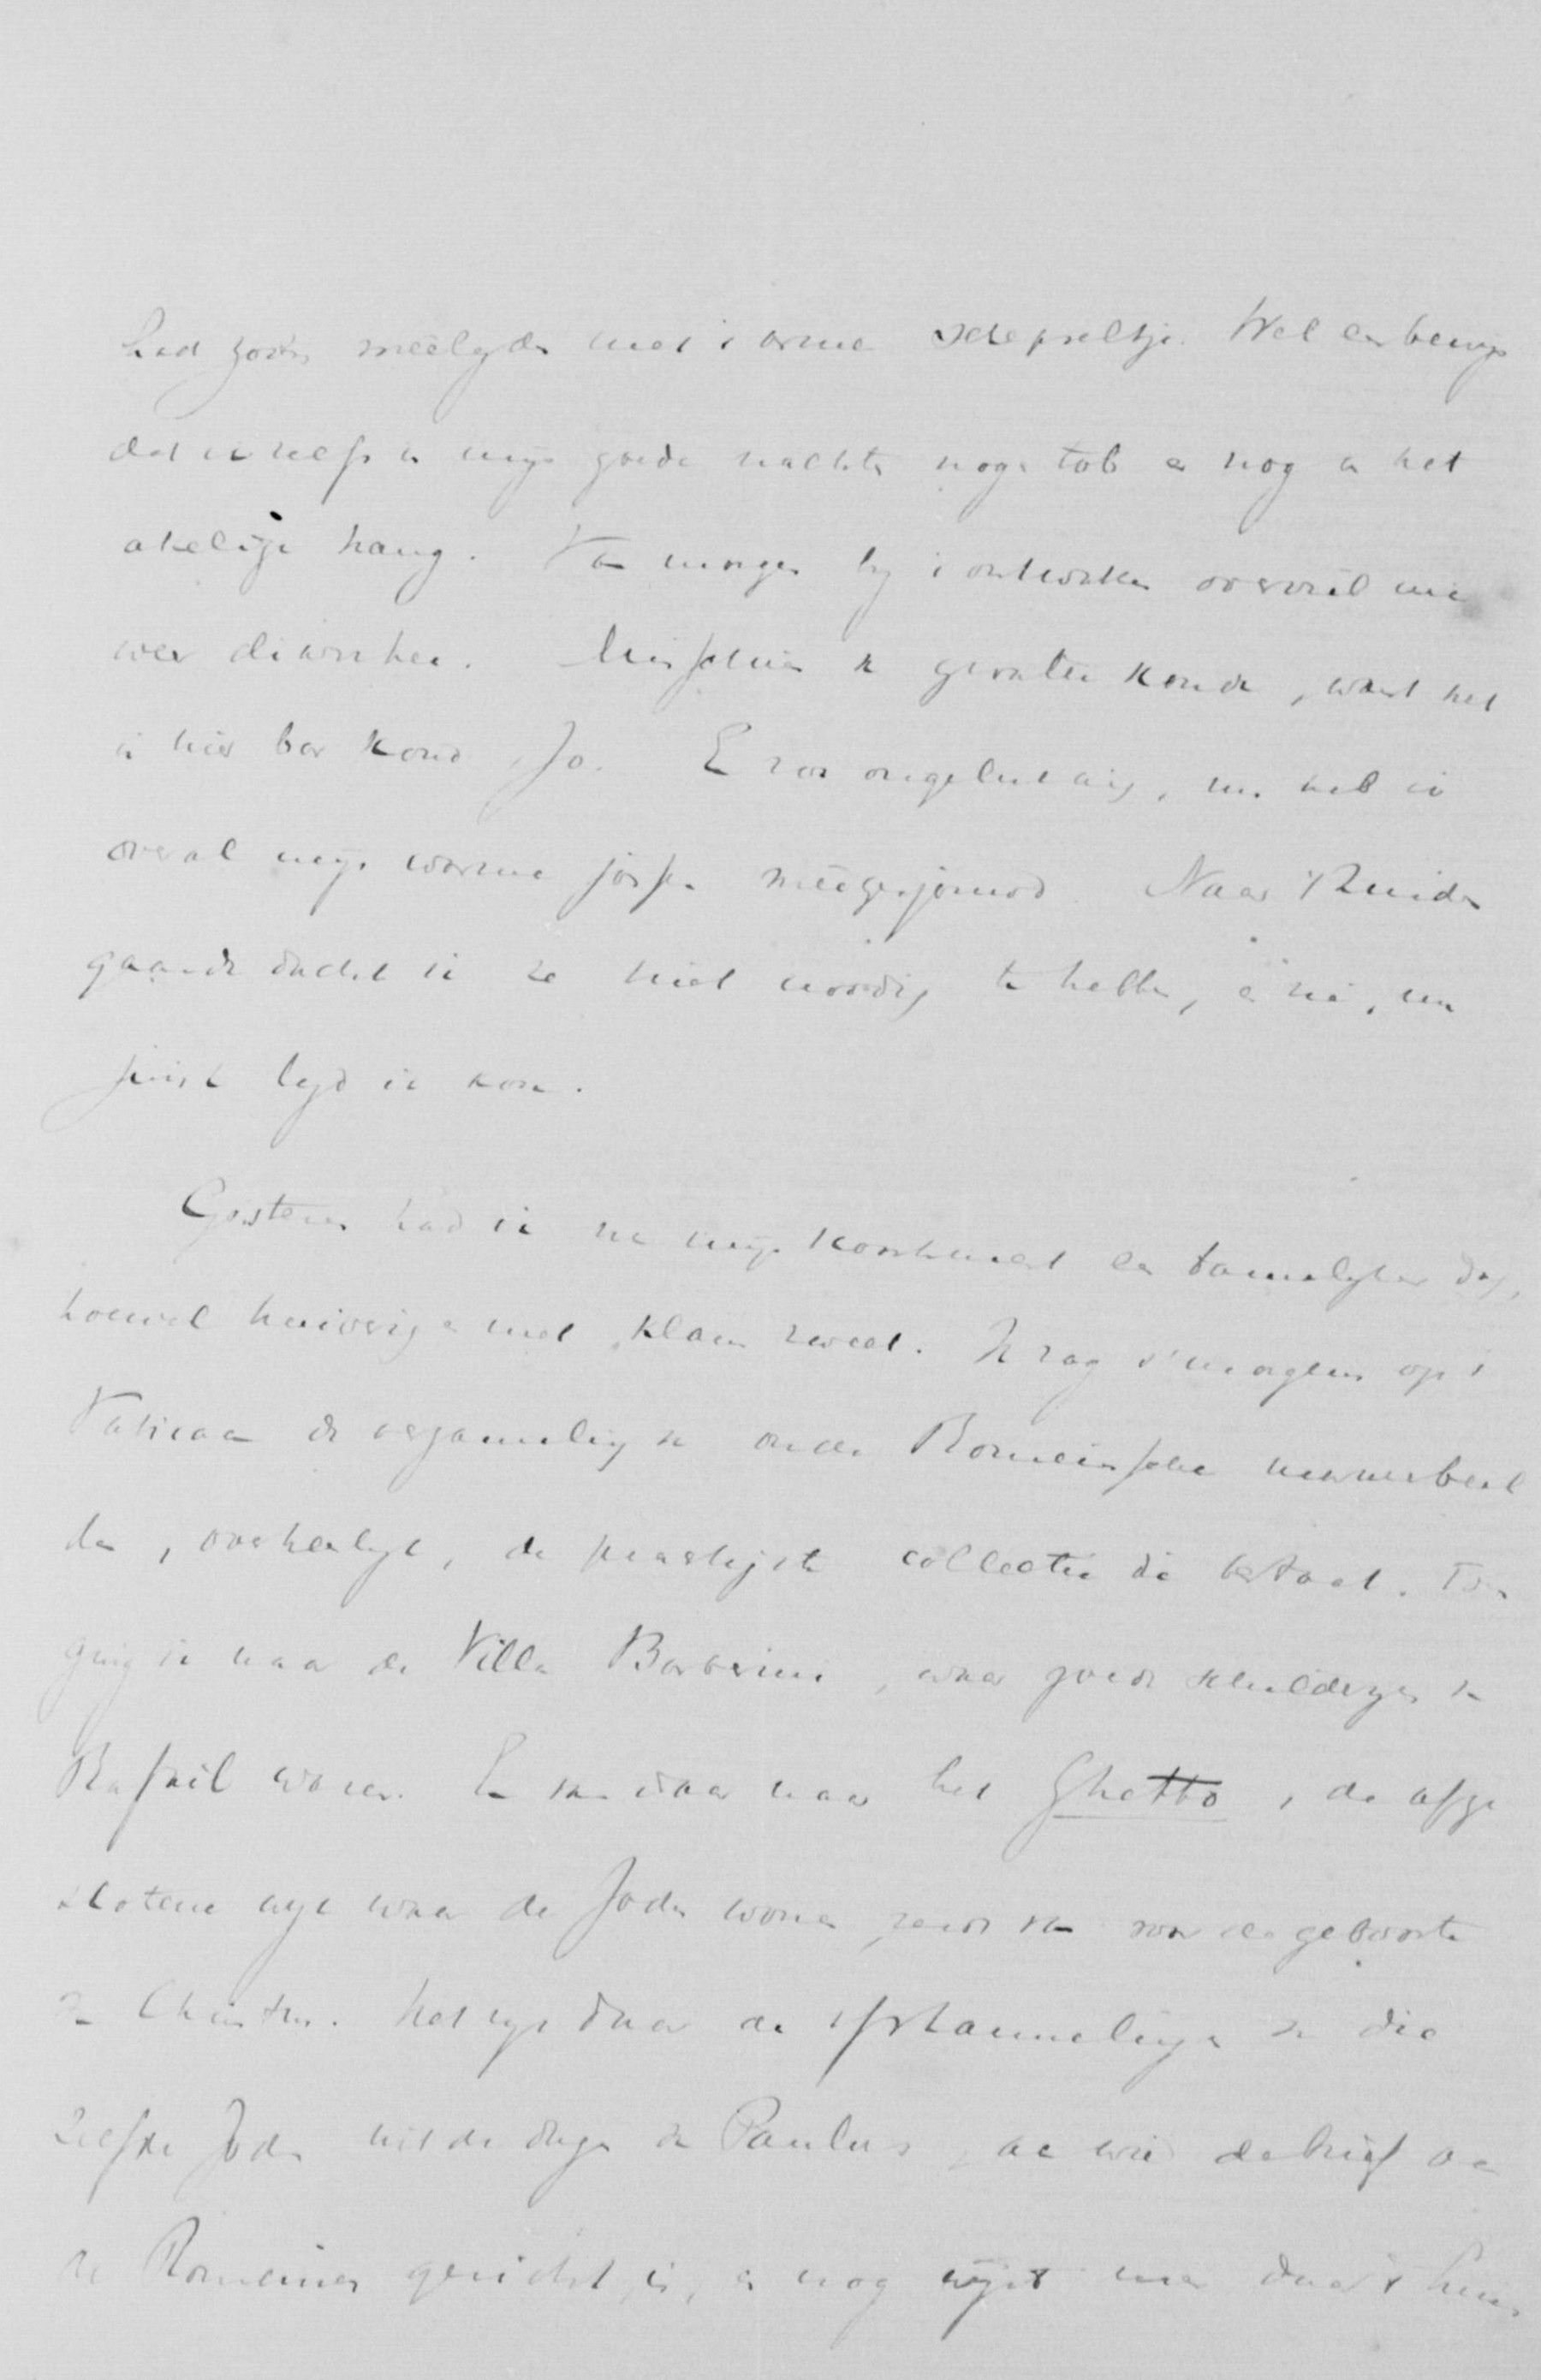 had zoo'n meelyden met 't arme schepseltje. Wel een bewys
dat ik zelfs in myn goede nachten nog tob en nog in het
akelige hang. Van morgen by 't ontwaken overviel me
weer die Misschien gevatte koude, want het
is hier bar koud, Jo. En zoo ongelukkig, nu heb ik
overal myn warme jassen meegesjouwd. Naar 't Zuiden
gaande dacht ik ze niet noodig te hebben, en zie, nu
juist lyd ik kou.
Gisteren had ik na myn een tamelyken dag,
hoewel huiverig en met klam zweet. Ik zag 's morgens op 't
Vaticaan de verzameling van oude Romeinsche marmerbeel
den, overheerlyk, de prachtigste collectie die bestaat. Toen
ging ik naar de Villa Barberini, waar goede schilderyen van
Rafaël waren. En van daar naar het Ghetto, de afge
slotene wyk waar de Joden wonen, reeds van voor de geboorte
van Christus. Het zyn daar de afstammelingen van die
zelfde Joden uit de dagen van Paulus, aan wie de brief aan
de Romeinen gericht is, en nog wyst men daar 't huis